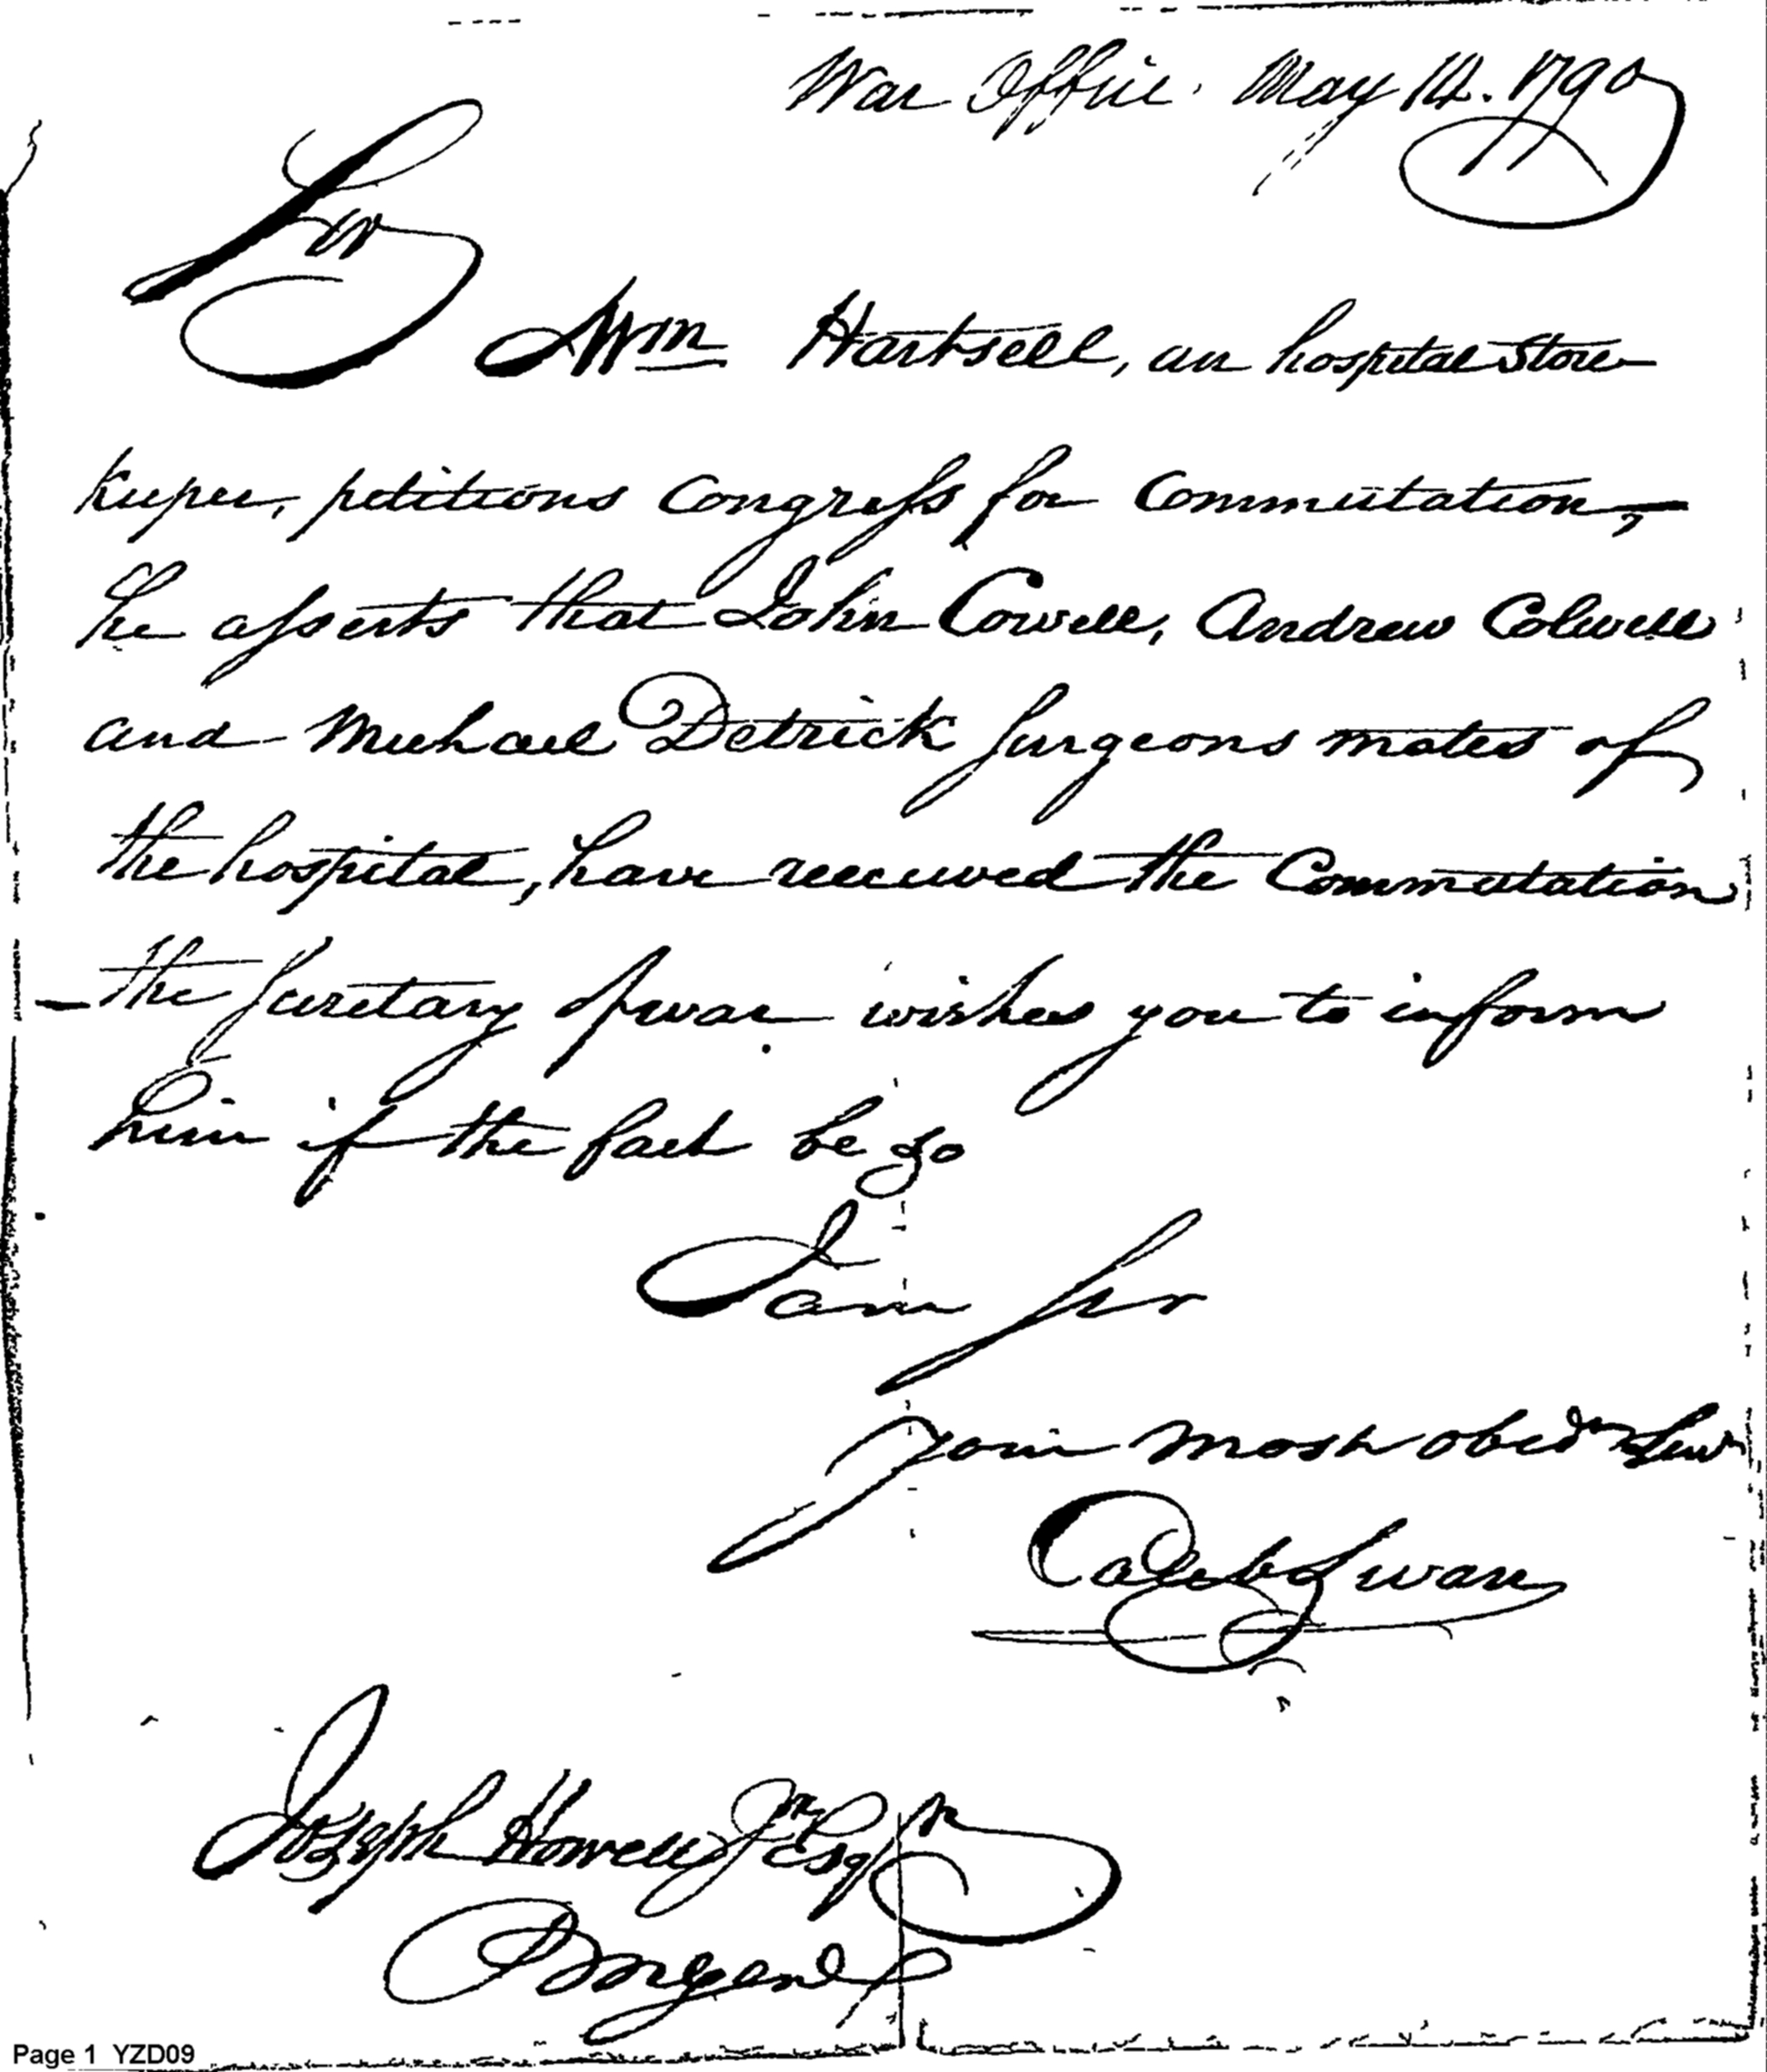 War Office. May 14. 1790
Sir
Wm Hartsell, an hospital Store
keeper, petitions Congress for Commutation,
he asserts that John Cowell, Andrew Colwell
and Michael Detrick Surgeons mates of
the hospital, have received the Commutation
- the Secretary of war wishes you to inform
him if the fact be So
I am Sir
your most obedt Servt
Caleb Swan
Joseph Howell Jr Esqr
Page 1 YZD09